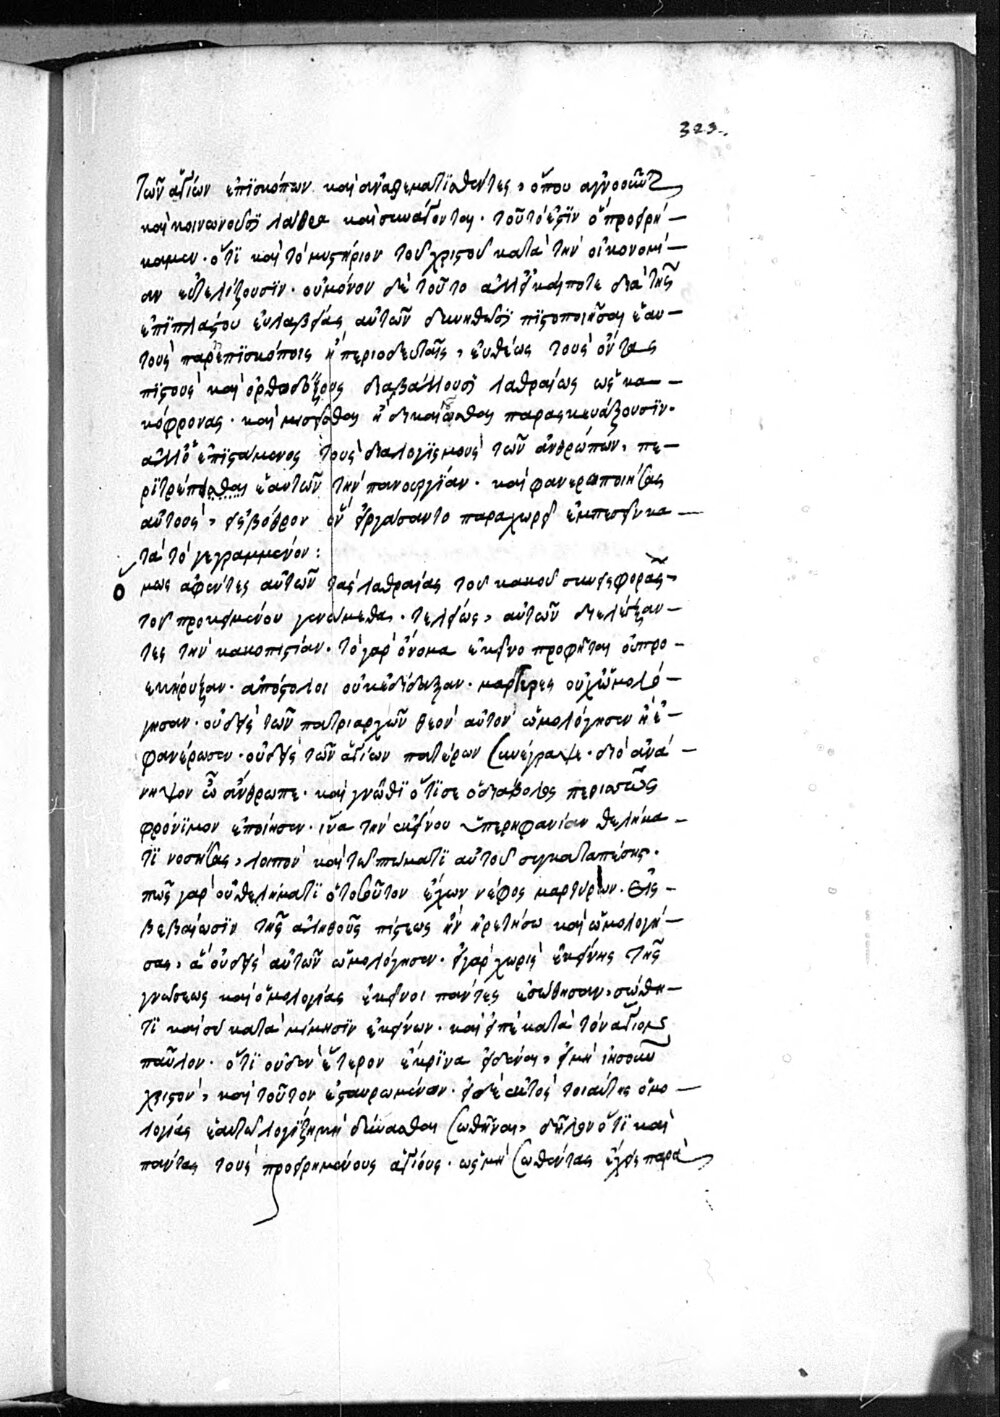 323.
τῶν ἁγίων ἐπϊσκόπων καὶ ἀναθεματϊσθέντες, ὅπου ἀγνοοῦντ
καὶ κοινωνοῦσϊ λάθρα καὶ συνάγονται. τοῦτό ἐστϊν ὃ προειρή-
καμεν. ὅτϊ καὶ τὸ μυστήριον τοῦ χριστοῦ κατὰ τὴν οἰκονομί-
αν εὐτελίζουσϊν. οὐ μόνον δὲ τοῦτο ἀλλ' εἰ κάποτε διὰ τῆς
ἐπϊπλάστου εὐλαβείας αὐτῶν δυνηθῶσϊ πϊστοποιῆσαι ἑαυ-
τοὺς παρ' ἐπϊσκόποις ἢ περιοδευταῖς, εὐθέως τοὺς ὄντας
πϊστοὺς καὶ ὀρθοδόξους διαβάλλουσϊ λαθραίως ὡς κα-
κόφρονας. καὶ μισεῖσθαι ἢ διχαϊοῦσθαι παρασκευάζουσϊν.
ἀλλ' ὁ ἐπϊστάμενος τοὺς διαλογϊσμοὺς τῶν ἀνθρώπων, πε-
ρϊτρέπεσθαι ἑαυτῶν τὴν πανουργίαν. καὶ φανεροποιήσας
αὐτοὺς, εἰς βόθρον ὃν εἰργάσαντο παραχωρεῖ ἐμπεσεῖν κα-
τὰ τὸ γεγραμμένον:
Ὅμως ἀφέντες αὐτῶν τὰς λαθραίας τοῦ κακοῦ συνεισφορὰς,
τοῦ προκειμένου γενώμεθα. τελείως, αὐτῶν διελέγξαν-
τες τὴν κακοπιστίαν. τὸ γὰρ ὄνομα ἐκεῖνο προφῆται οὐ προ-
εκήρυξαν. ἀπόστολοι οὐκ ἐδίδαξαν. μάρτυρες οὐχ ὡμολό-
γησαν. οὐδεὶς τῶν πατριαρχῶν θεὸν αὐτὸν ὡμολόγησεν ἢ ἐ-
φανέρωσεν. οὐδεὶς τῶν ἁγίων πατέρων συνέγραψε. διὸ ἀνά-
νηψον ὦ ἄνθρωπε. καὶ γνῶθϊ ὅτϊ σε ὁ διάβολος περισσῶς
φρόνϊμον ἐποίησεν. ἵνα τὴν ἐκείνου ὑπερηφανίαν θελήμα-
τϊ νοσήσας, λοιπὸν καὶ τῷ πτώματϊ αὐτοῦ συγκαταπέσης.
πῶς γὰρ οὐ θελήματϊ ὁ τοσοῦτον ἔχων νέφος μαρτύρων. εἰς
βεβαίωσϊν τῆς ἀληθοῦς πίστεως ἣν ἠρετήσω καὶ ὡμολογή-
σας, ἃ οὐδεὶς αὐτῶν ὡμολόγησεν. εἰ γὰρ χωρὶς ἐκείνης τῆς
γνώσεως καὶ ὁμολογίας ἐκεῖνοι πάντες ἐσώθησαν, σώθη-
τϊ καὶ σὺ κατὰ μίμησϊν ἐκείνων. καὶ εἰπὲ κατὰ τὸν ἅγιον
παῦλον. ὅτϊ οὐδὲν ἕτερον ἔκρϊνα εἰδέναι, εἰ μὴ ἰησοῦν
χριστὸν, καὶ τοῦτον ἐσταυρωμένον. εἰ δὲ ἐκτὸς τοιαύτης ὁμο-
λογίας ἑαυτῷ λογίζῃ μὴ δύνασθαι σωθῆναι, δῆλον ὅτϊ καὶ
πάντας τοὺς προειρημένους ἁγίους. ὡς μὴ σωθέντας ἔχεις παρὰ